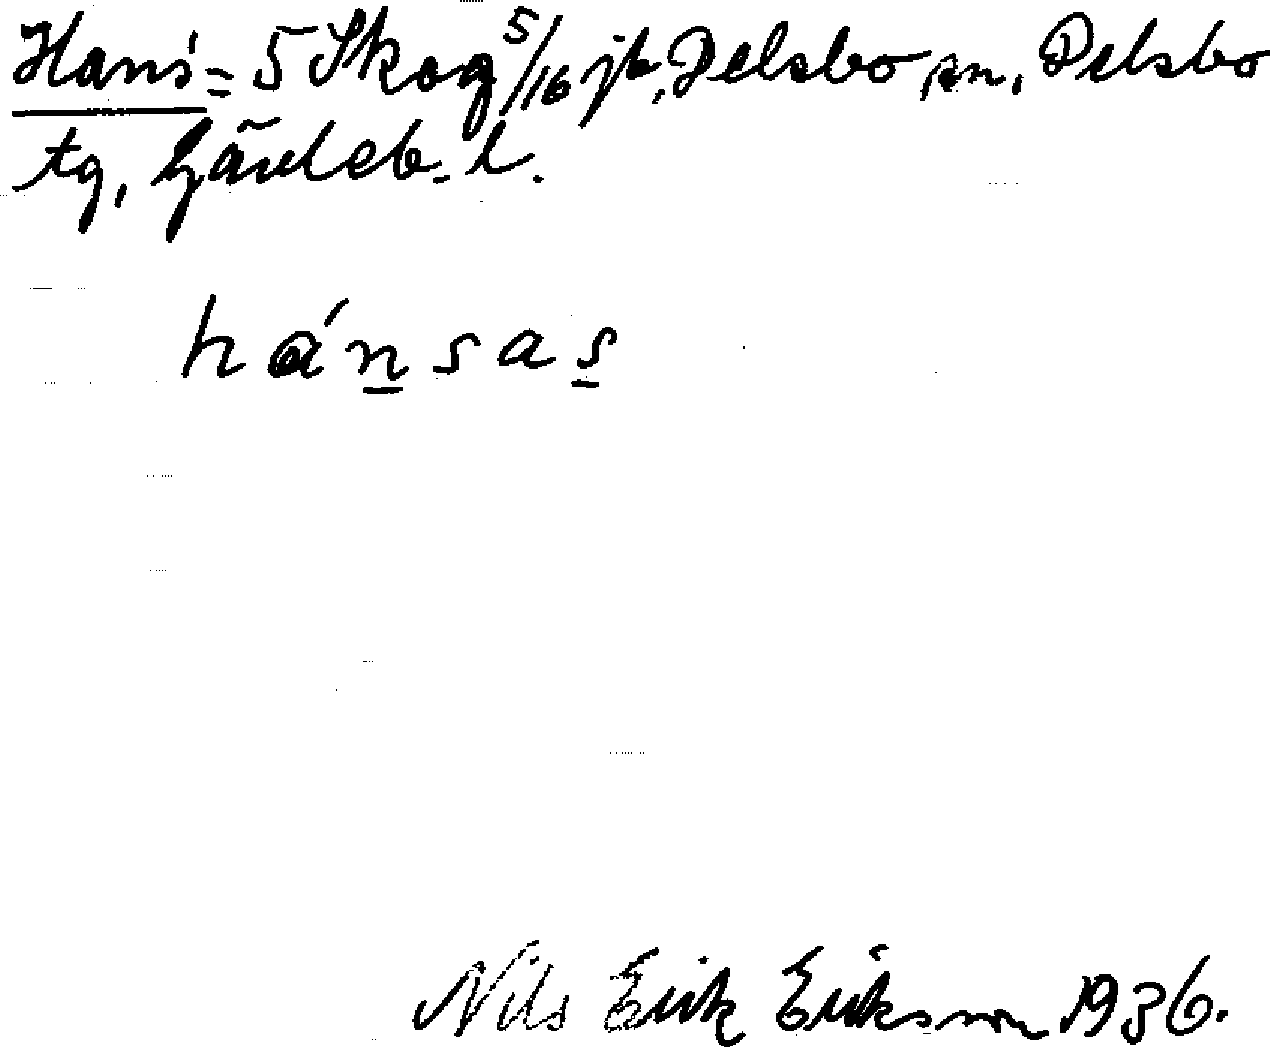 Hans = 5 Skog 5/16 jb, Delsbo sn, Delsbo
tg, Gävleb. l.
hánsas
Nils Erik Eriksson 1936.